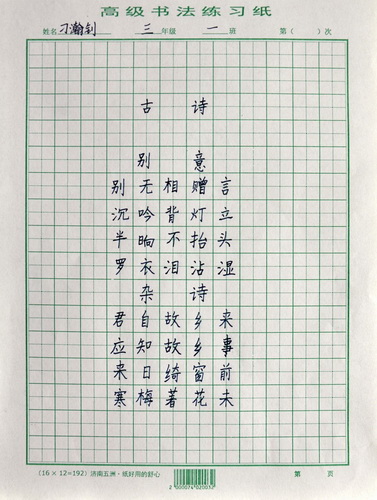 高级书法练习纸
姓名 刁瀚钊 三 年级 一 班 第( )次
古诗
别意
别无相赠言
沉吟背灯立
半晌不抬头
罗衣泪沾湿
杂诗
君自故乡来
应知故乡事
来日绮窗前
寒梅著花未
(16×12=192) 济南五洲·纸好用的舒心 第 页